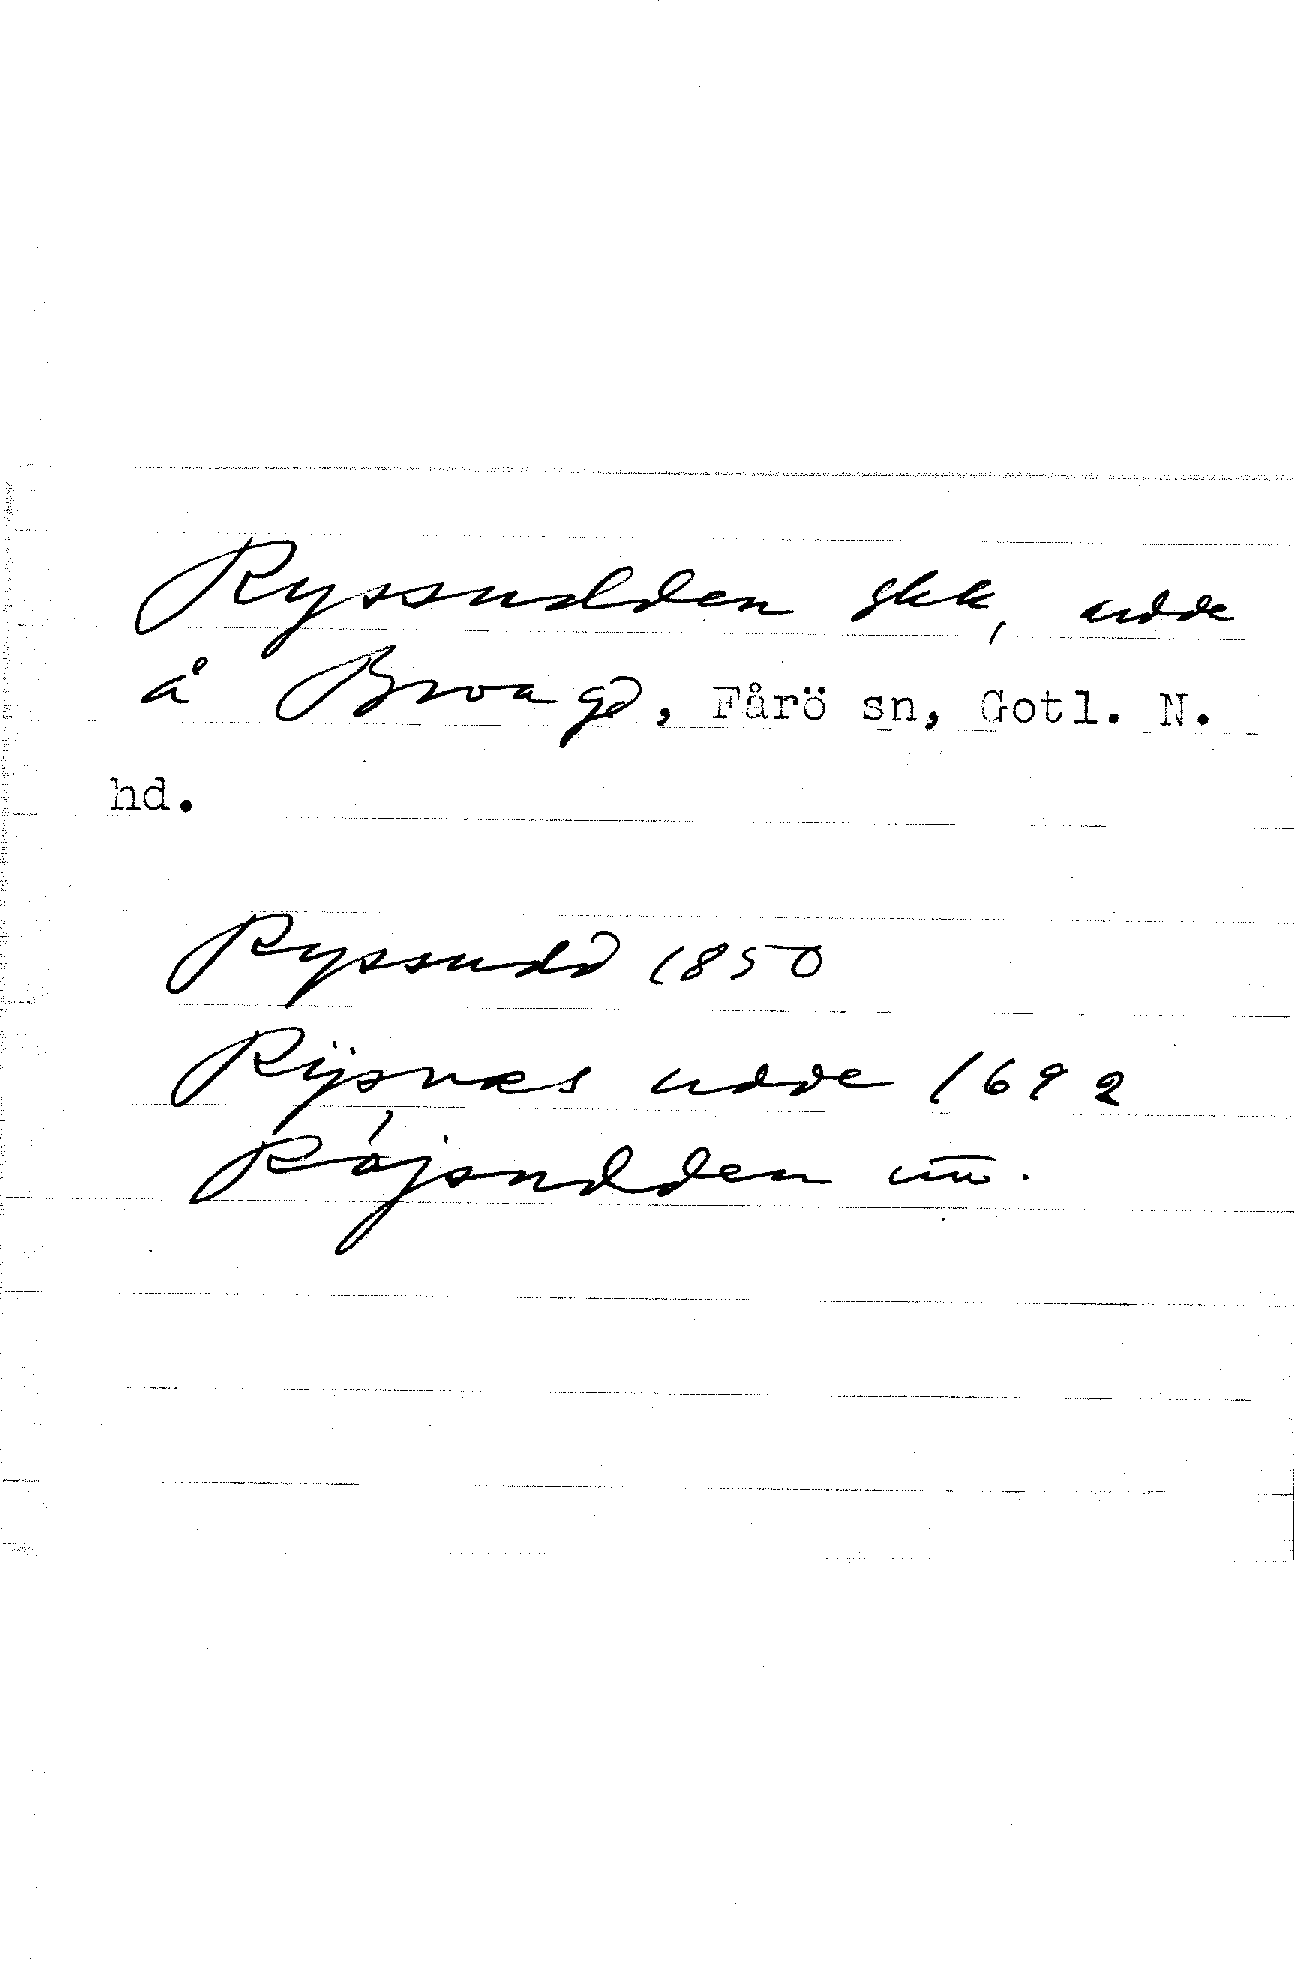 Ryssudden gkk, udde
å Broa gd, Fårö sn, Gotl. N.
hd.
Ryssudd 1850
Rÿsnæs udde 1692
Röjsudden utt.